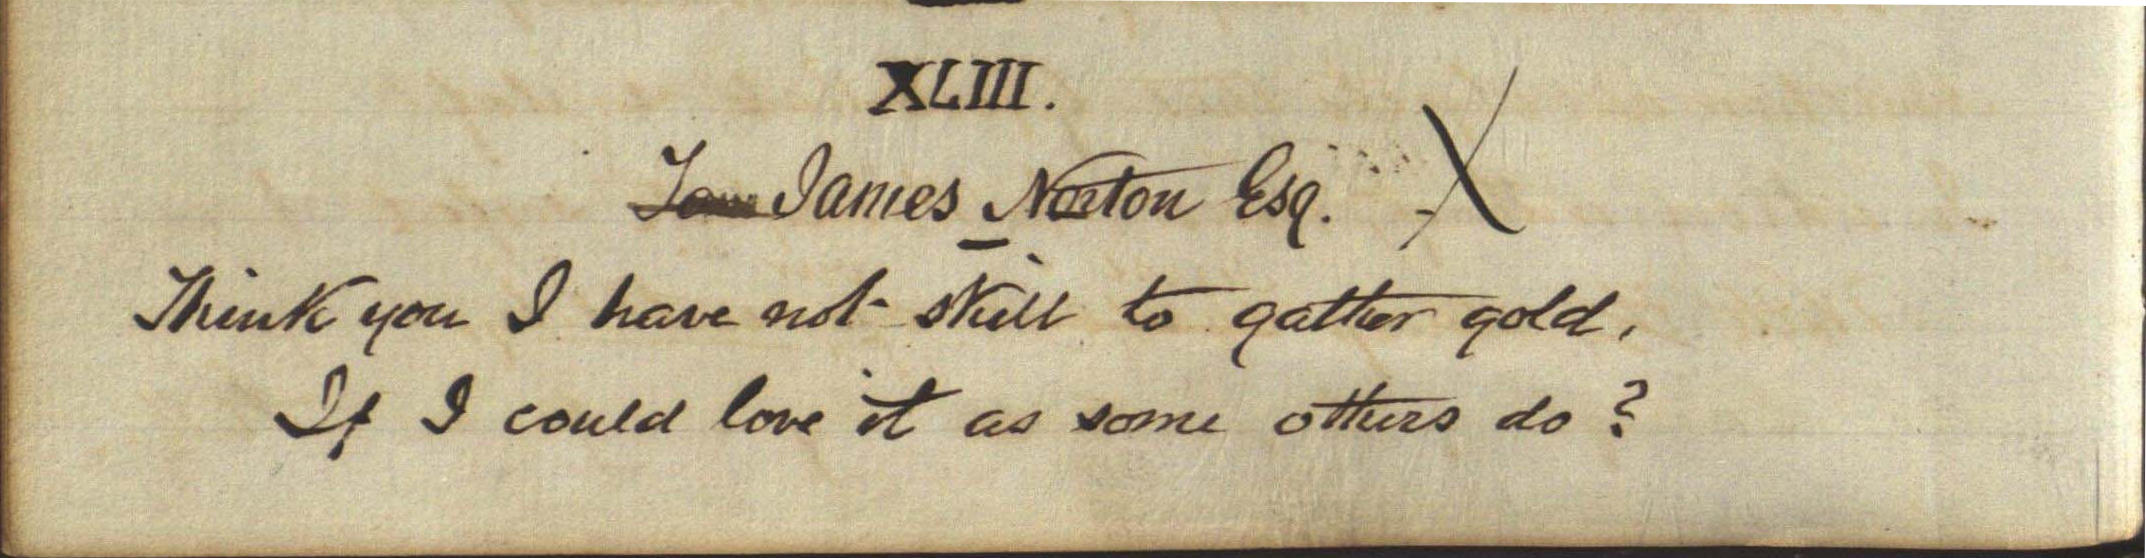 XLIII.
James Norton Esq. X
Think you I have not skill to gather gold,
If I could love it as some others do?